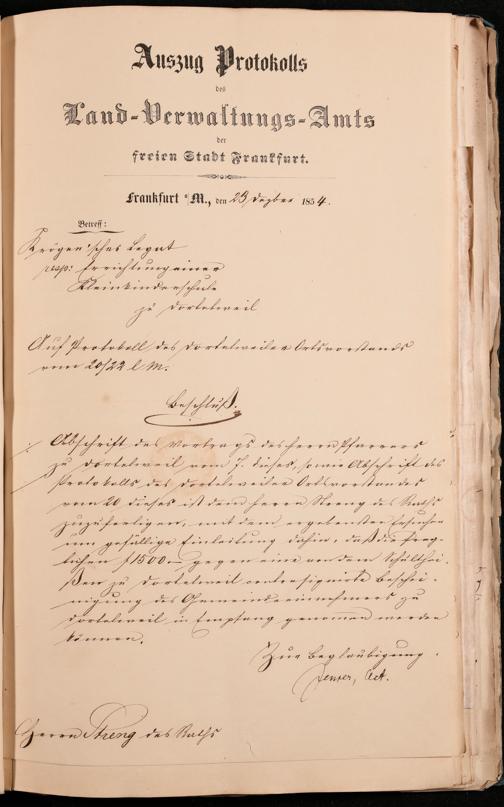 Auszug Protokolls
des
Land-Verwaltungs-Amts
der
freien Stadt Frankfurt.
Frankfurt a/M., den 23 Dezber 1854.
Betreff:
Krögen'sches Legat
resp: Errichtung einer
Kleinkinderschule
zu Dortelweil
Auf Protokoll des Dortelweiler Ortsvorstands
vom 20/22 l. M.
Beschluß.
Abschrift des Vortrags des Herrn Pfarrers
zu Dortelweil vom 7. dieses, sowie Abschrift des
Protokolls des Dortelweiler Ortsvorstandes
vom 20 dieses ist dem Herrn Streng des Raths
zuzufertigen, mit dem ergebensten Ersuchen
um gefällige Einleitung dahin, daß die frag-
lichen f 1500.– gegen eine von dem Schulthei-
ßen zu Dortelweil contrasignirte Beschei-
nigung des Gemeindeeinnehmers zu
Dortelweil in Empfang genommen werden
können.
Zur Beglaubigung.
Act.
Herrn Streng des Raths